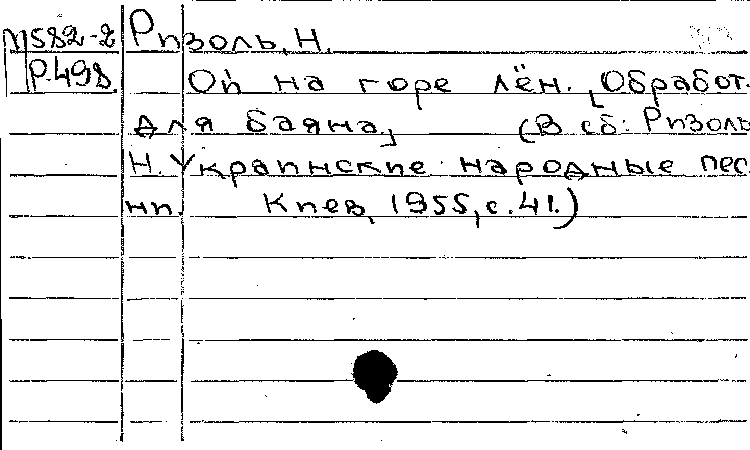 М582-2 Ризоль, Н.
Р.498. Ой на горе лён. [Обработ.
для баяна] (В сб: Ризоль
Н. Украинские народные пес
ни. Киев, 1955, с.41.)